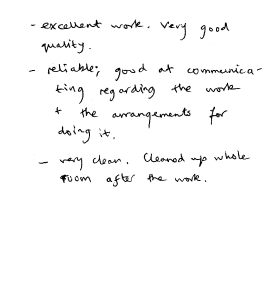 - excellent work. Very good
quality.
- reliable; good at communica-
ting regarding the work
+ the arrangements for
doing it.
- very clean. Cleaned up whole
room after the work.